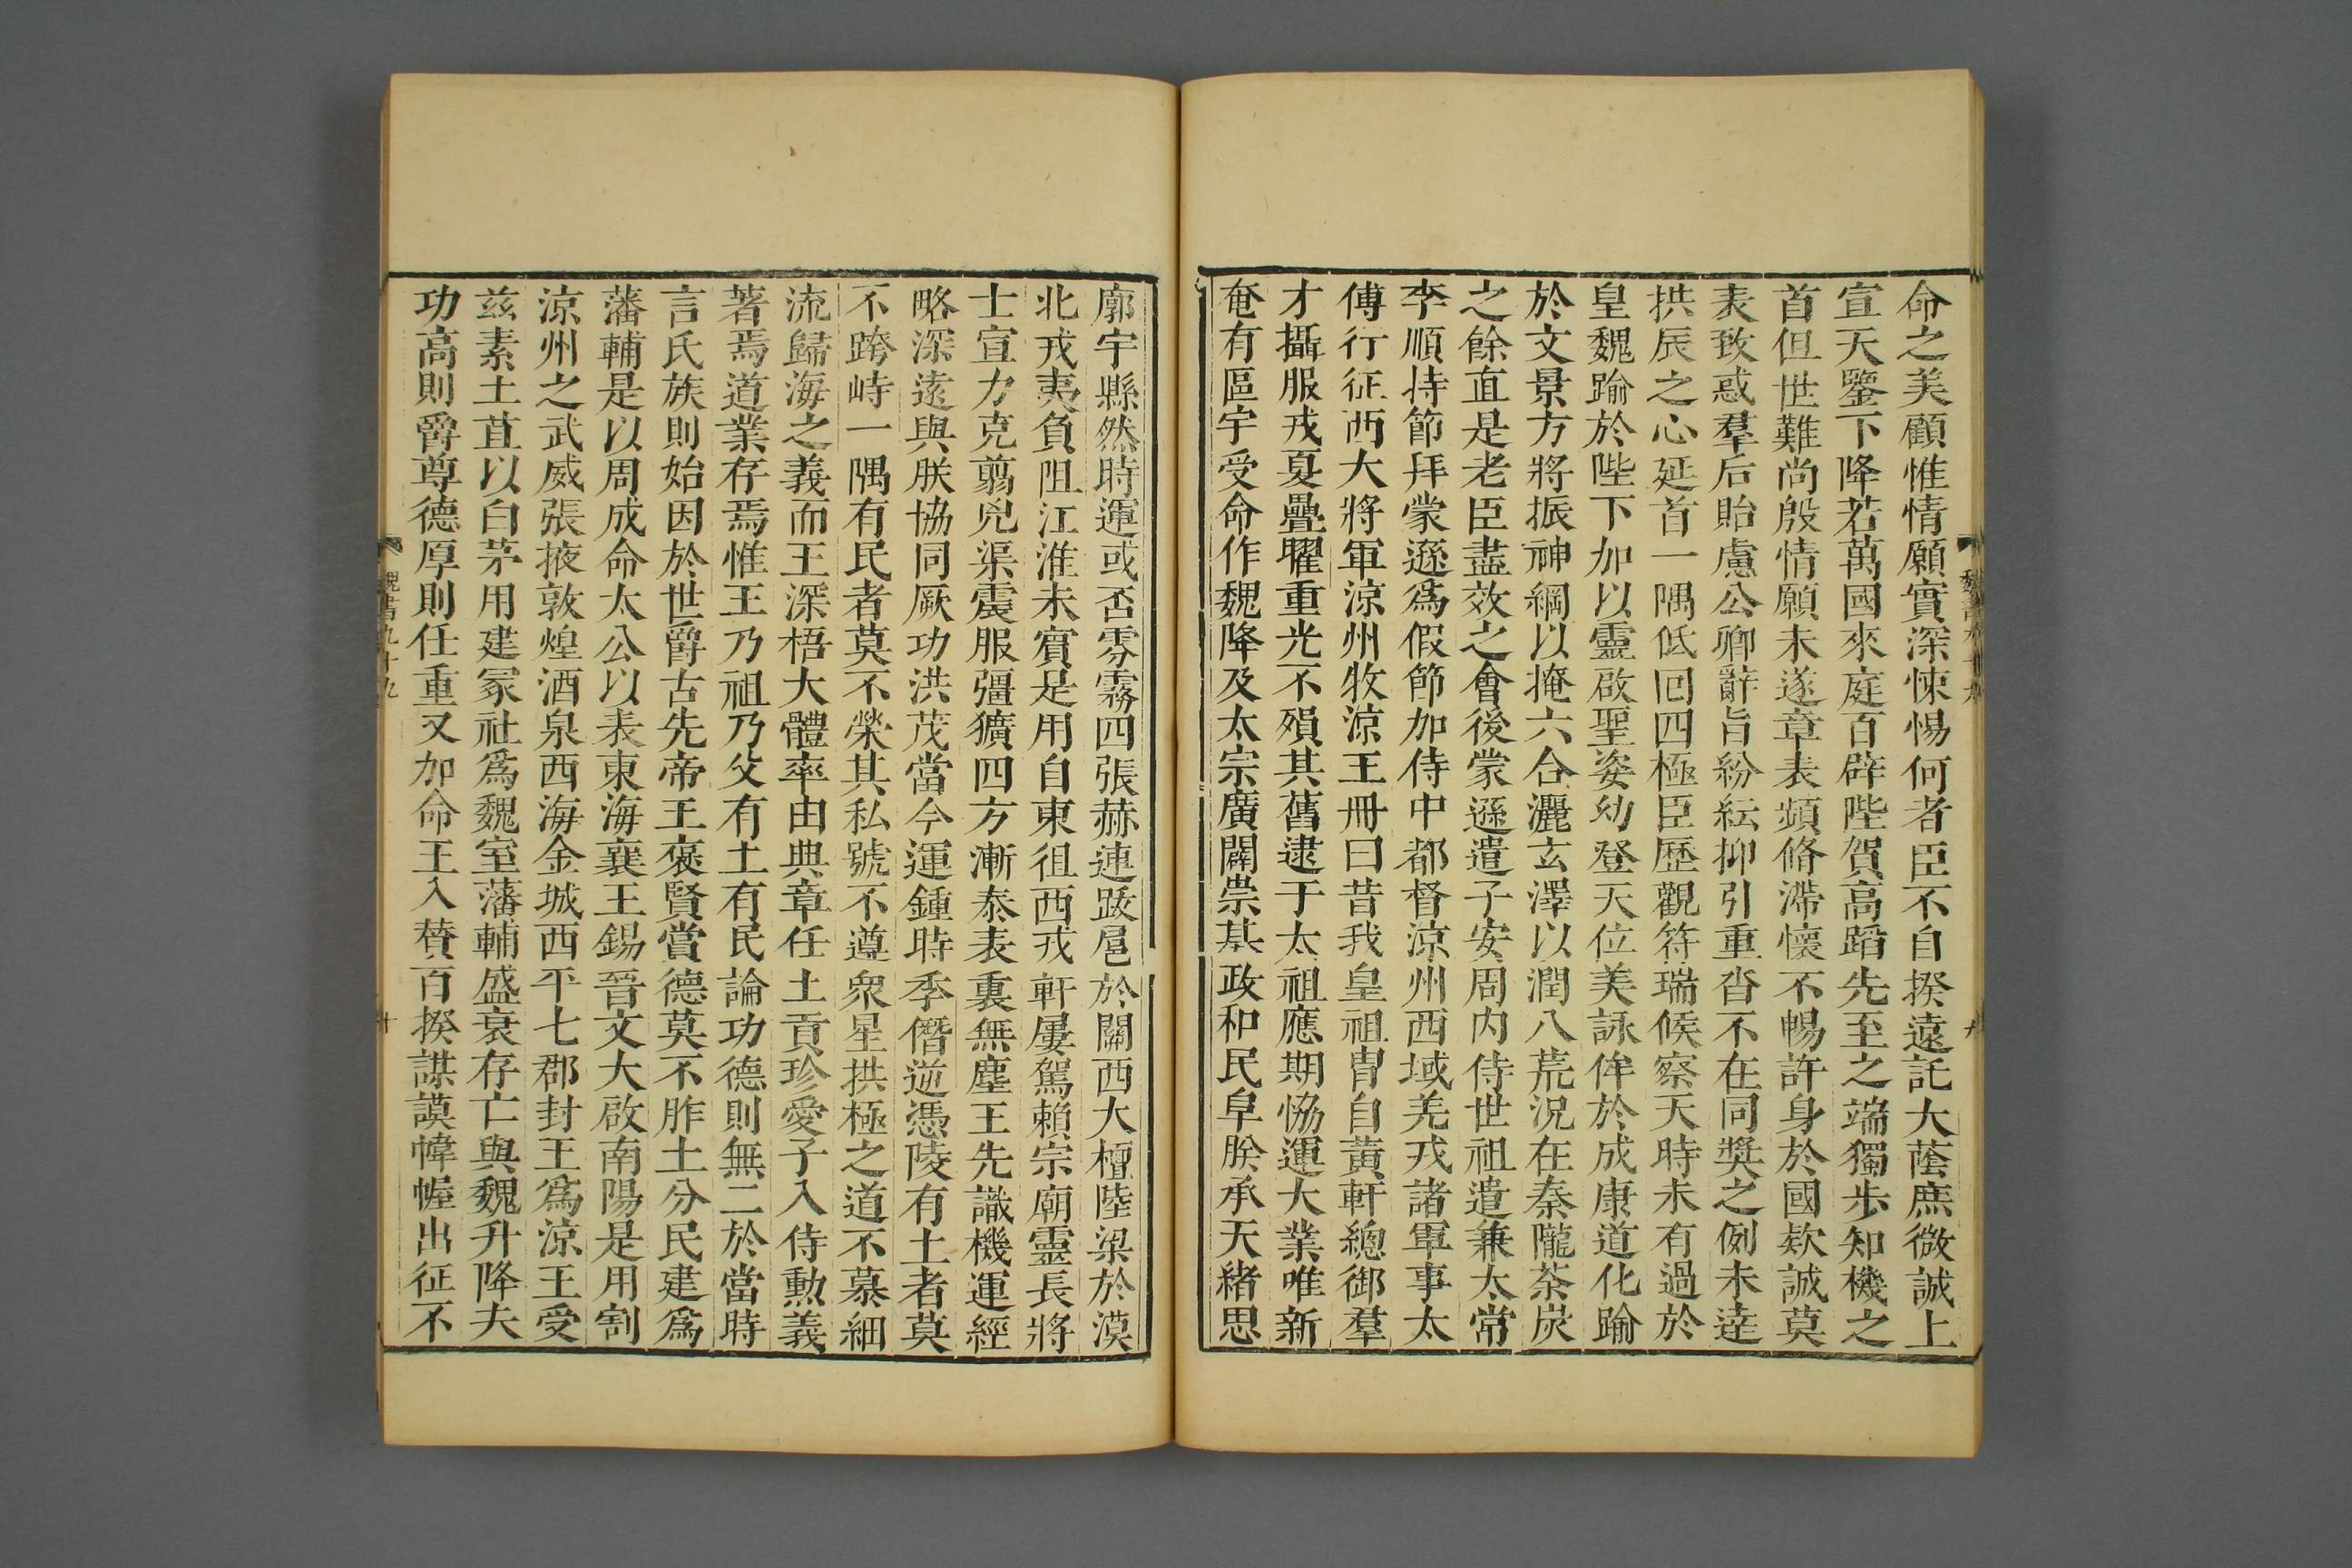 命之美顧惟情願實深悚惕何者臣不自揆遠託大蔭庶微誠上
宣天鑒下降若萬國來庭百辟陛賀高蹈先至之端獨步知機之
首但世難尚殷情願未遂章表頻脩滯懷不暢許身於國欵誠莫
表致惑羣后貽慮公卿辭旨紛紜抑引重沓不在同獎之例未達
拱辰之心延首一隅低回四極臣歷觀符瑞候察天時未有過於
皇魏踰於陛下加以靈啟聖姿幼登天位美詠侔於成康道化踰
於文景方將振神綱以掩六合灑玄澤以潤八荒況在秦隴荼炭
之餘直是老臣盡效之會後蒙遜遣子安周内侍世祖遣兼太常
李順持節拜蒙遜爲假節加侍中都督涼州西域羌戎諸軍事太
傅行征西大將軍涼州牧涼王冊曰昔我皇祖胄自黃軒總御羣
才攝服戎夏疊曜重光不殞其舊逮于太祖應期恊運大業唯新
奄有區宇受命作魏降及太宗廣闢崇基政和民阜朕承天緒思
廓宇縣然時運或否雰霧四張赫連跋扈於關西大檀陸梁於漠
北戎夷負阻江淮未賓是用自東徂西戎軒屢駕賴宗廟靈長將
士宣力克翦兇渠震服彊獷四方漸泰表裏無塵王先識機運經
略深遠與朕協同厥功洪茂當今運鍾時季僭逆憑陵有土者莫
不跨峙一隅有民者莫不榮其私號不遵衆星拱極之道不慕細
流歸海之義而王深悟大體率由典章任土貢珍愛子入侍勳義
著焉道業存焉惟王乃祖乃父有土有民論功德則無二於當時
言氏族則始因於世爵古先帝王褒賢賞德莫不胙土分民建爲
藩輔是以周成命太公以表東海襄王錫晉文大啟南陽是用割
涼州之武威張掖敦煌酒泉西海金城西平七郡封王爲涼王受
兹素土苴以白茅用建冢社爲魏室藩輔盛衰存亡與魏升降夫
功高則爵尊德厚則任重又加命王入贊百揆謀謨幃幄出征不
魏書九十九
九
魏書九十九
十